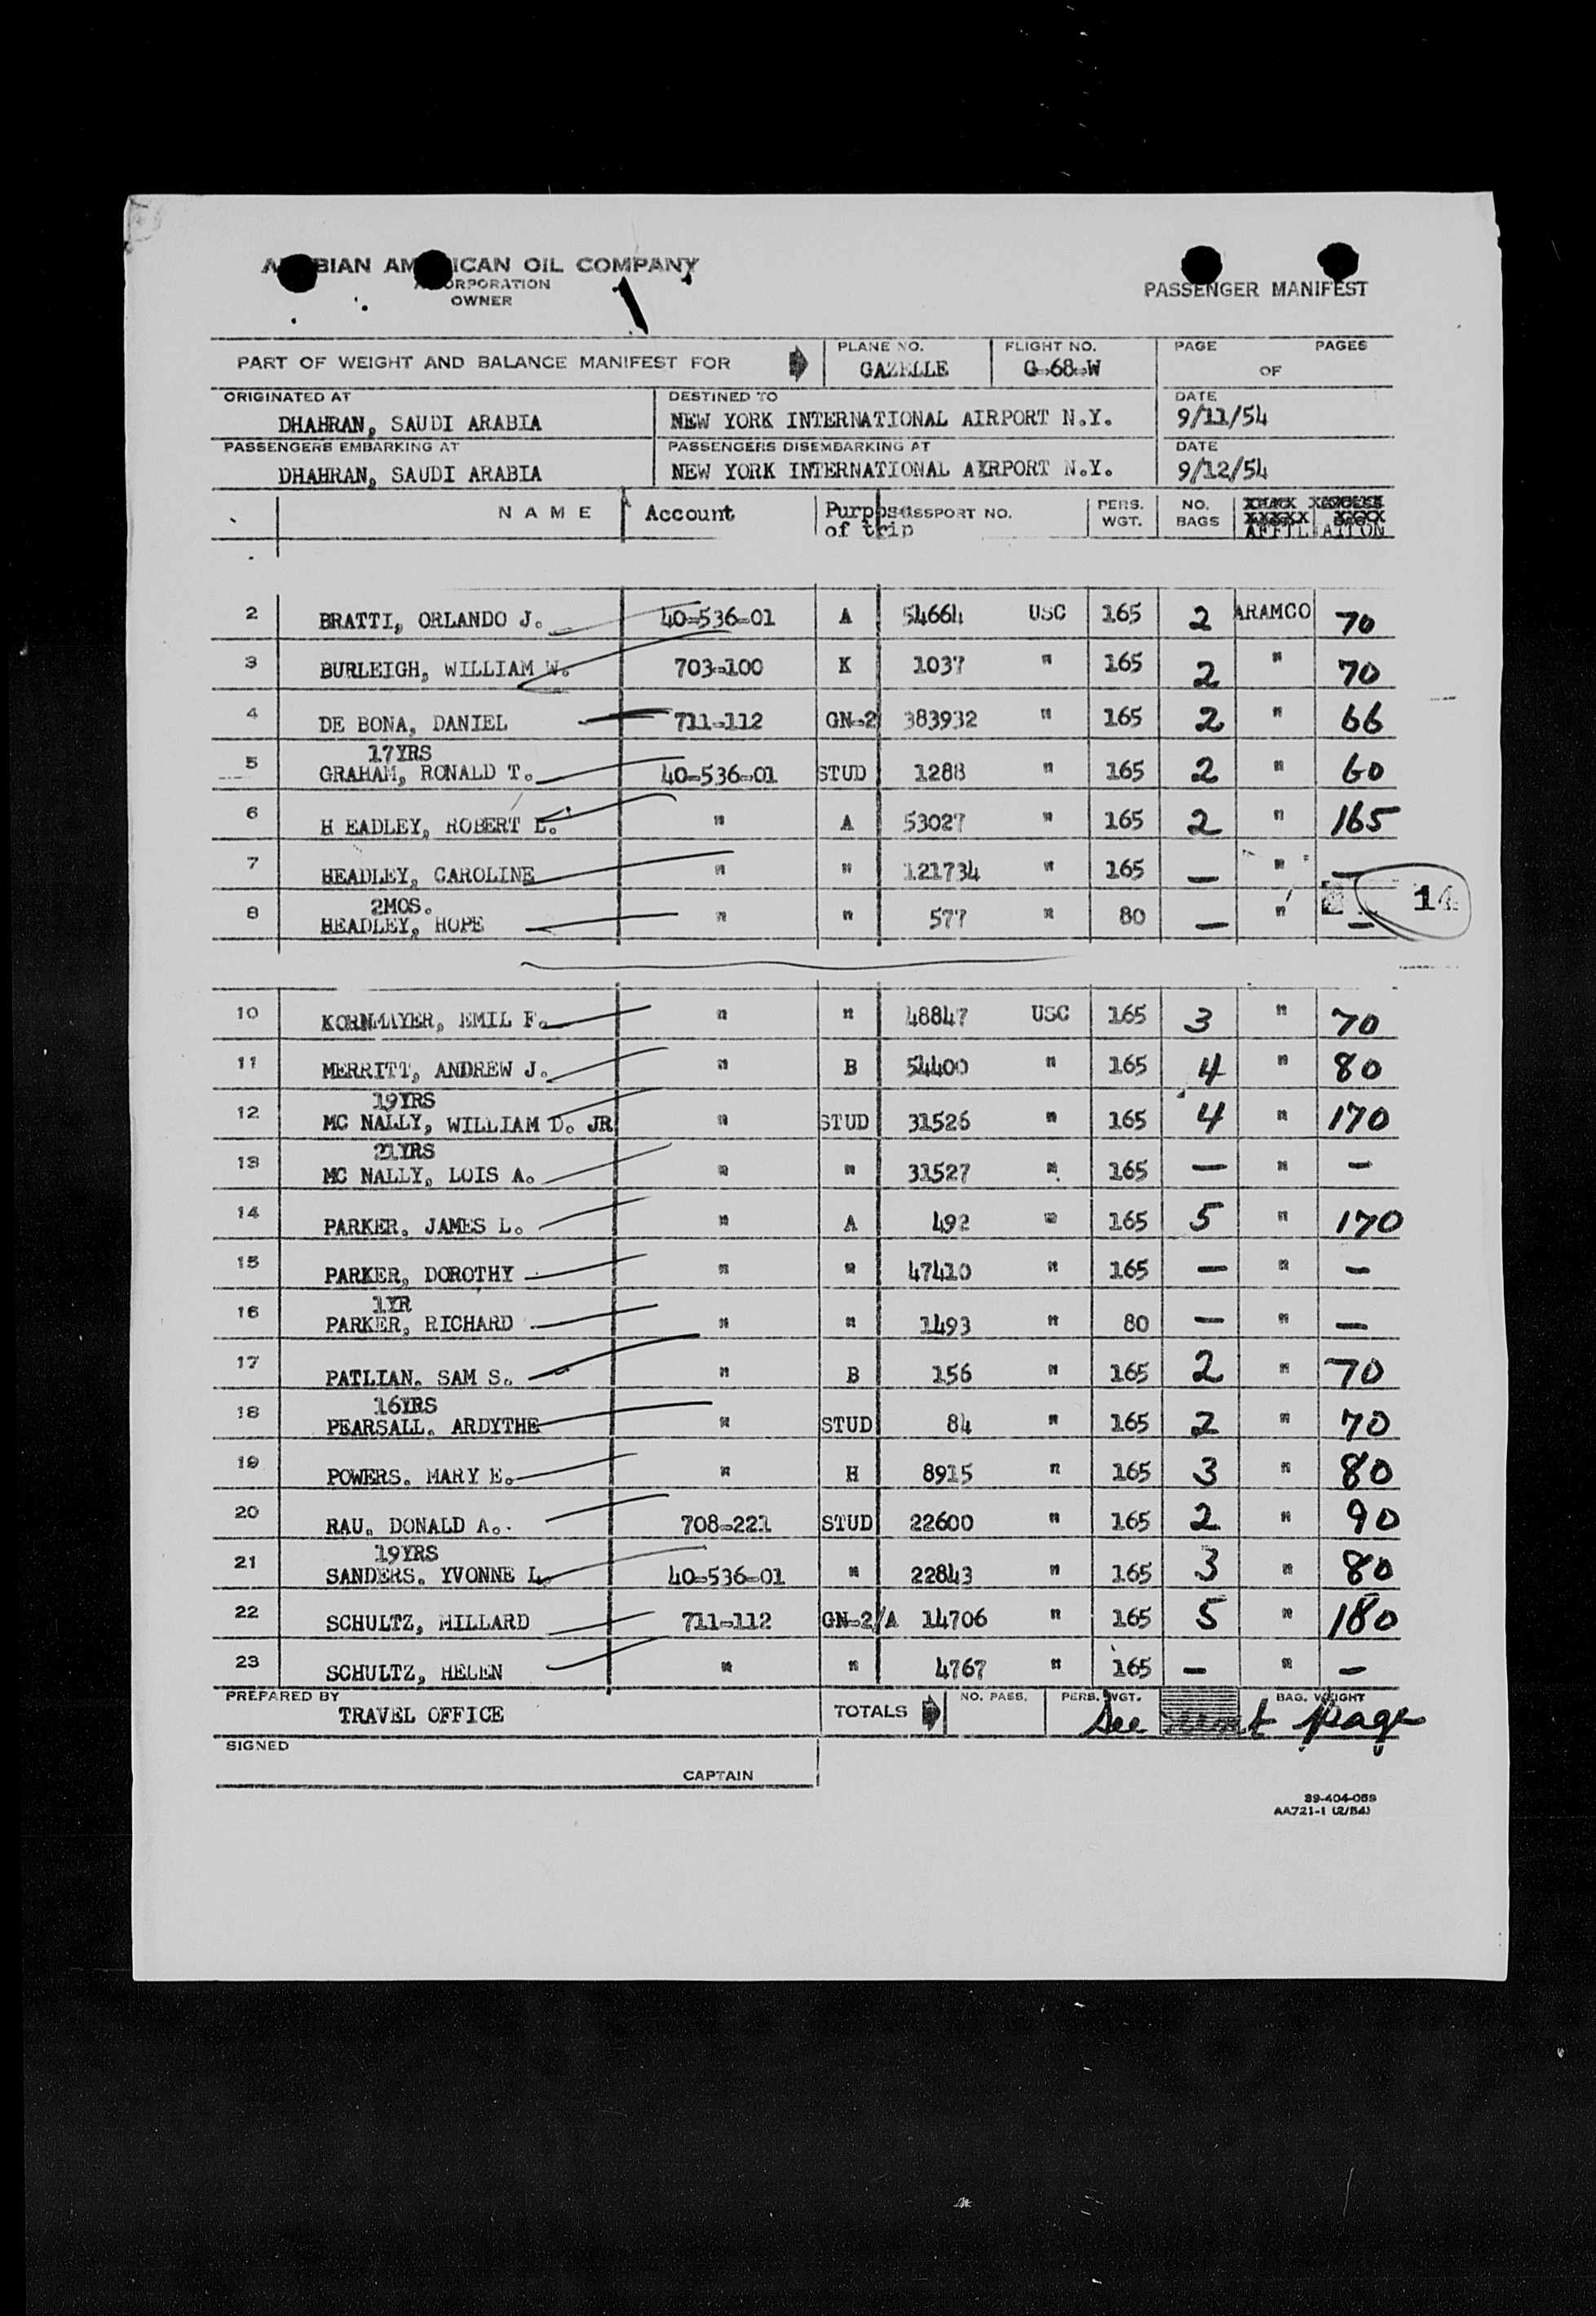 ARABIAN AMERICAN OIL COMPANY
CORPORATION
OWNER
PASSENGER MANIFEST
PART OF WEIGHT AND BALANCE MANIFEST FOR PLANE NO. GAZELLE FLIGHT NO. G-68-W PAGE OF PAGES
ORIGINATED AT DESTINED TO DATE
DHAHRAN, SAUDI ARABIA NEW YORK INTERNATIONAL AIRPORT N.Y. 9/11/54
PASSENGERS EMBARKING AT PASSENGERS DISEMBARKING AT DATE
DHAHRAN, SAUDI ARABIA NEW YORK INTERNATIONAL AIRPORT N.Y. 9/12/54
NAME Account Purpose of trip PASSPORT NO. PERS. WGT. NO. BAGS AFFILIATION
2 BRATTI, ORLANDO J. 40-536-01 A 54664 USC 165 2 ARAMCO 70
3 BURLEIGH, WILLIAM W. 703-100 K 1037 " 165 2 " 70
4 DE BONA, DANIEL 711-112 GN-2 383932 " 165 2 " 66
17YRS
5 GRAHAM, RONALD T. 40-536-01 STUD 1288 " 165 2 " 60
6 H EADLEY, ROBERT L. " A 53027 " 165 2 " 165
7 HEADLEY, CAROLINE " " 121734 " 165 — " —
2MOS.
8 HEADLEY, HOPE " " 577 " 80 — " —
14
10 KORNMAYER, EMIL F. " " 48847 USC 165 3 " 70
11 MERRITT, ANDREW J. " B 54400 " 165 4 " 80
19YRS
12 MC NALLY, WILLIAM D. JR " STUD 31526 " 165 4 " 170
21YRS
13 MC NALLY, LOIS A. " " 31527 " 165 — " —
14 PARKER, JAMES L. " A 492 " 165 5 " 170
15 PARKER, DOROTHY " " 47410 " 165 — " —
1YR
16 PARKER, RICHARD " " 1493 " 80 — " —
17 PATLIAN. SAM S. " B 156 " 165 2 " 70
16YRS
18 PEARSALL. ARDYTHE " STUD 84 " 165 2 " 70
19 POWERS. MARY E. " H 8915 " 165 3 " 80
20 RAU. DONALD A. 708-221 STUD 22600 " 165 2 " 90
19YRS
21 SANDERS. YVONNE L. 40-536-01 " 22843 " 165 3 " 80
22 SCHULTZ, MILLARD 711-112 GN-2/A 14706 " 165 5 " 180
23 SCHULTZ, HELEN " " 4767 " 165 — " —
PREPARED BY TRAVEL OFFICE TOTALS NO. PASS. PERS. WGT. BAG. WEIGHT
See next page
SIGNED
CAPTAIN
89-404-059
AA721-1 (2/54)